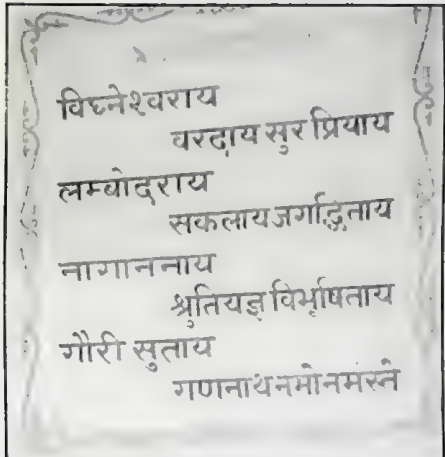 विघ्नेश्वराय
वरदाय सुर प्रियाय
लम्बोदराय
सकलाय जगद्धिताय
नागाननाय
श्रुतियज्ञ विभूषिताय
गौरी सुताय
गणनाथ नमो नमस्ते